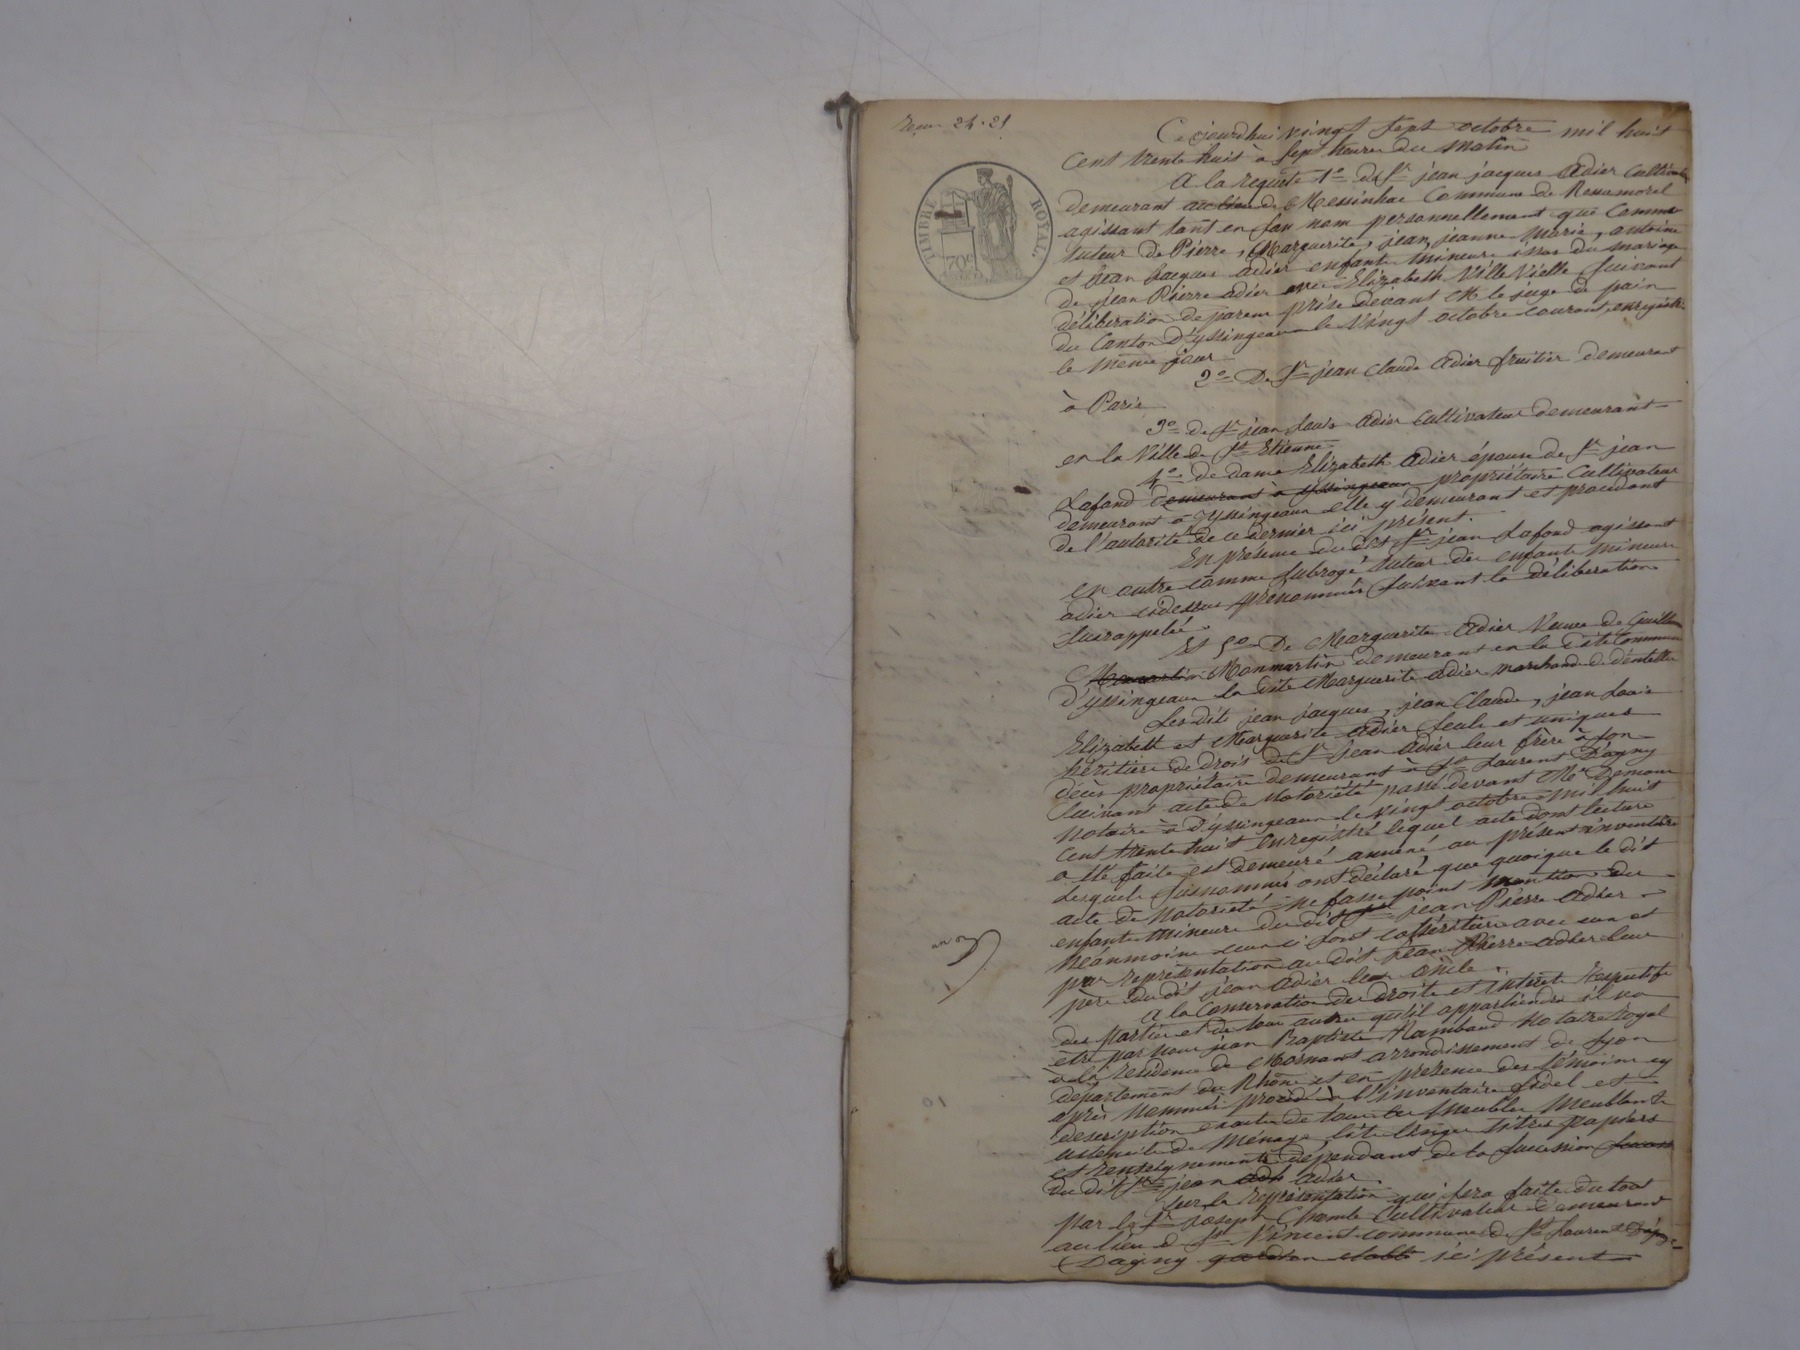 Reçu 24.21
TIMBRE ROYAL
70c
Cejourdhui vingt sept octobre mil huit
cent trente huit à sept heures du matin
A la requête 1o du Sr jean jacques Adier cultivateur
demeurant au lieu de Messinhac Commune de
agissant tant en son nom personnellement que comme
tuteur de Pierre, Marguerite, jean, jeanne Marie, antoine
et jean Jacques adier enfants mineurs issus du mariage
de jean Pierre adier avec Elizabeth Ville Vielle suivant
délibération de parens prise devant M le juge de paix
du Canton D'yssingeaux le vingt octobre courant, enregistré
le même jour
2o De Sr jean Claude Adier fruitier demeurant
à Paris
3o de Sr jean Louis Adier Cultivateur demeurant
en la Ville de St Etienne
4o de dame Elizabeth Adier épouse de Sr jean
Lafond demeurant à yssingeaux propriétaire Cultivateur
demeurant à Yssingeaux elle y demeurant et procédant
de l'autorité de ce dernier ici présent.
En présence du dit Sr jean Lafond agissant
en outre comme subrogé tuteur des enfants mineurs
adier cidessus prénommés suivant la délibération
susrappelée.
Et 5o De Marguerite Adier Veuve de Guillaume
Monmartin Monmartin demeurant en la dite Commune
D'yssingeaux la dite Marguerite adier marchande de dentelles
Les dits jean jacques, jean Claude, jean Louis
Elizabeth et Marguerite Adier seuls et uniques
héritiers de droit de Sr Jean Adier leur frère à son
décès propriétaire demeurant à St Laurent D'agny
suivant acte de Notoriété passé devant Me
notaire à D'yssingeaux le vingt octobre mil huit
cent trente huit Enregistré lequel acte dont lecture
a été faite est demeuré annexé au présent inventaire
Lesquels susnommés ont déclaré que quoique le dit
acte de Notoriété ne fasse point mention des
enfants mineurs du dit Sr jean Pierre Adier
néanmoins ceux ci sont cohéritiers avec eux et
par représentation au dit jean Pierre adier leur
père du dit jean Adier leur oncle.
A la Conservation des droits et intérêts respectifs
des parties et de tous autres qu'il appartiendra il va
être par nous jean Baptiste Rambaud Notaire Royal
à la résidence de Mornant arrondissement de Lyon
département du Rhône et en présence des témoins cy
après nommés procédé à l'inventaire fidel et
description exacte de tous les meubles meublants
ustensils de ménage lits linges titres papiers
et renseignements dépendant de la succession
du dit Sr jean adier.
Sur la représentation qui sera faite du tout
par le Sr joseph Cultivateur demeurant
au lieu de St Vincent commune de St Laurent
Dagny gardien établi ici présent